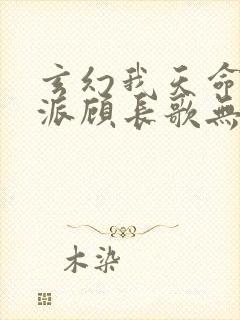 玄幻我天命
派顾长歌無
木染